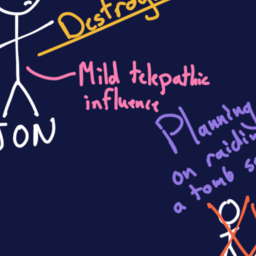 Destroy
Mild telepathic
influence
JON
Planning
on raidin
a tomb s